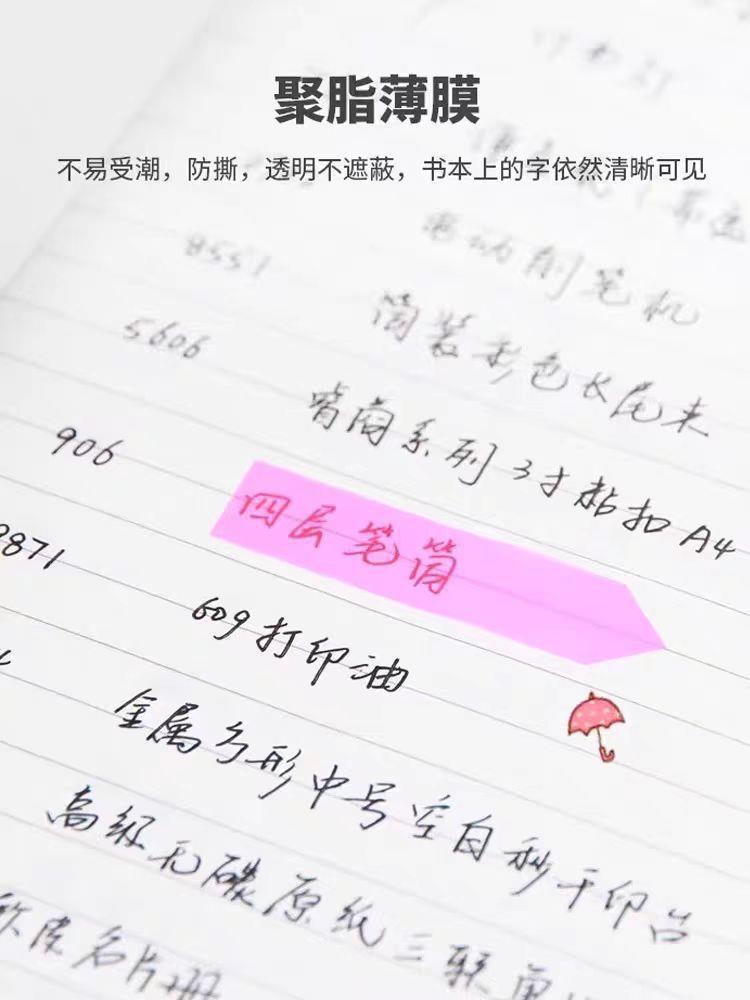 聚脂薄膜
不易受潮，防撕，透明不遮蔽，书本上的字依然清晰可见
电动削笔机
8557
筒装彩色长尾夹
5606
系列3寸粘扣A4
906
四层笔筒
9871
609打印油
金属方形中号空白秒干印台
高级无碳原纸三联单
软皮名片册